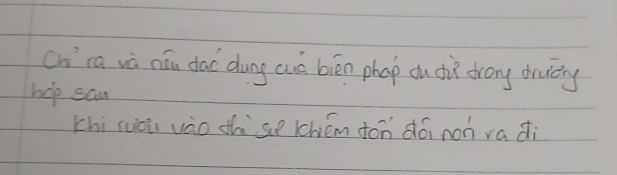 Chỉ ra và nêu tác dụng của biện pháp tu từ trong trường
hợp sau
Khi rượu vào thì sự khiêm tốn đội nón ra đi